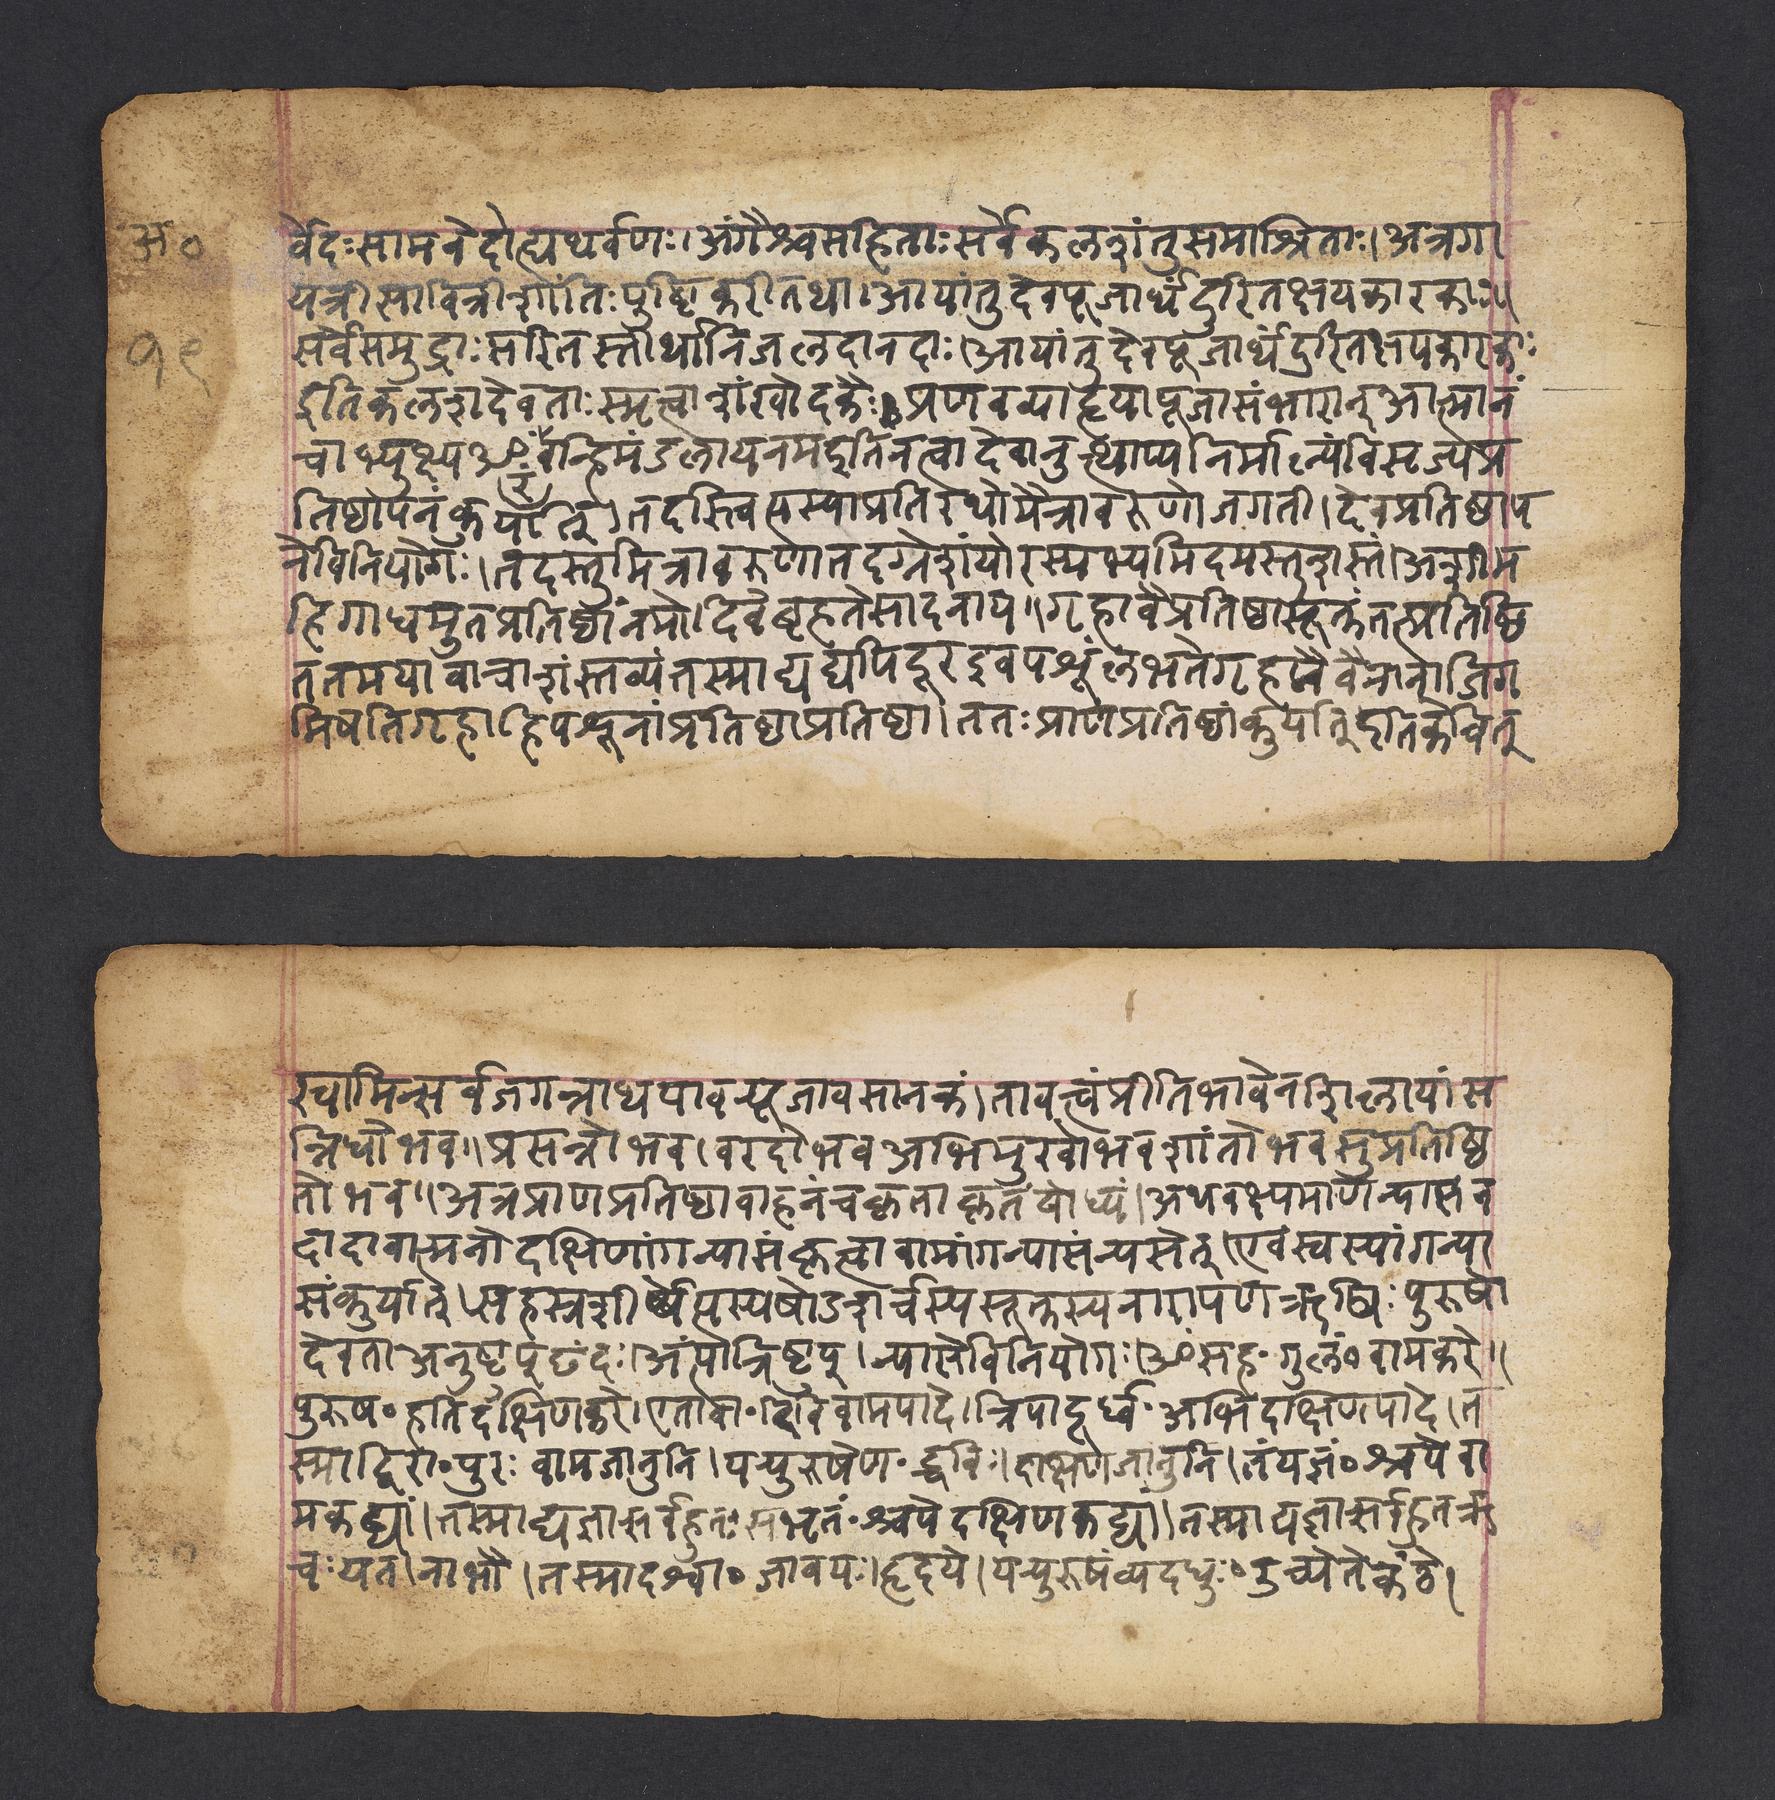 अ०
१९
र्वेदः सामवेदोह्यथर्वणः। अंगैश्चसहिताः सर्वेकलशांतुसमाश्रिताः। अत्रगा
यत्रीसावित्रीशांतिः पुष्टिकरीतथा। आयांतुदेवपूजार्थंदुरितक्षयकारकाः॥
सर्वेसमुद्राः सरितस्तीर्थानिजलदानदाः। आयांतुदेवपूजार्थंदुरितक्षयकारकाः
इतिकलशदेवताः स्मृत्वाशंखोदकैः प्रणवव्याहृत्यापूजासंभारान्आत्मानं
चाभ्युक्ष्यॐवन्हिमंडलायनमइतिनत्वादेवानुत्थाप्यनिर्माल्यंविसृज्यप्र
तिष्ठापनंकुर्यात्। तदस्त्वित्यस्याप्रतिरथोमैत्रावरुणोजगती। देवप्रतिष्ठाप
नेविनियोगः। तदस्तुमित्रावरुणातदग्नेशंयोरस्मभ्यमिदमस्तुशस्तं। अशीम
हिगाधमुतप्रतिष्ठांनमोदिवेबृहतेसादनाय॥ गृहावैप्रतिष्ठासूक्तंतत्प्रतिष्ठि
ततमयावाचाशंस्तव्यंतस्माद्यद्यपिदूरइवपशूंलभतेगृहानेवैनानाजिग
मिषतिगृहाहिपशूनांप्रतिष्ठाप्रतिष्ठा। ततः प्राणप्रतिष्ठांकुर्यात् इतिकेचित्
स्वामिन्सर्वजगन्नाथयावत्पूजावसानकं। तावत्त्वंप्रीतिभावेनशिलायांस
न्निधौभव॥ प्रसन्नोभव। वरदोभवअभिमुखोभवशांतोभवसुप्रतिष्ठि
तोभव॥ अत्रप्राणप्रतिष्ठावाहनंचकृताकृतंबोध्यं। अथवक्ष्यमाणन्यासव
दादावात्मनोदक्षिणांगन्यासंकृत्वावामांगन्यासंन्यसेत्। एवंस्वस्यांगन्या
संकुर्यात्। सहस्रशीर्षेत्यस्यषोडशर्चस्यसूक्तस्यनारायणऋषिः पुरुषो
देवताअनुष्टुप्छंदः। अंत्यात्रिष्टुप्। न्यासेविनियोगः। ॐसह॰गुलं॰वामकरे॥
पुरुष॰हतिदक्षिणकरे। एतावा॰दिविवामपादे। त्रिपादूर्ध्व॰अभिदक्षिणपादे। त
स्माद्विरा॰पुरः वामजानुनि। यत्पुरुषेण॰द्धविः। दक्षिणजानुनि। तंयज्ञं॰श्चयेवा
मकट्यां। तस्माद्यज्ञात्सर्वहुतः संभृतं॰श्चयेदक्षिणकट्यां। तस्माद्यज्ञात्सर्वहुतऋ
चः यत। नाभौ। तस्मादश्वा॰जावयः। हृदये। यत्पुरुषंव्यदधुः॰वुच्येतेकंठे।